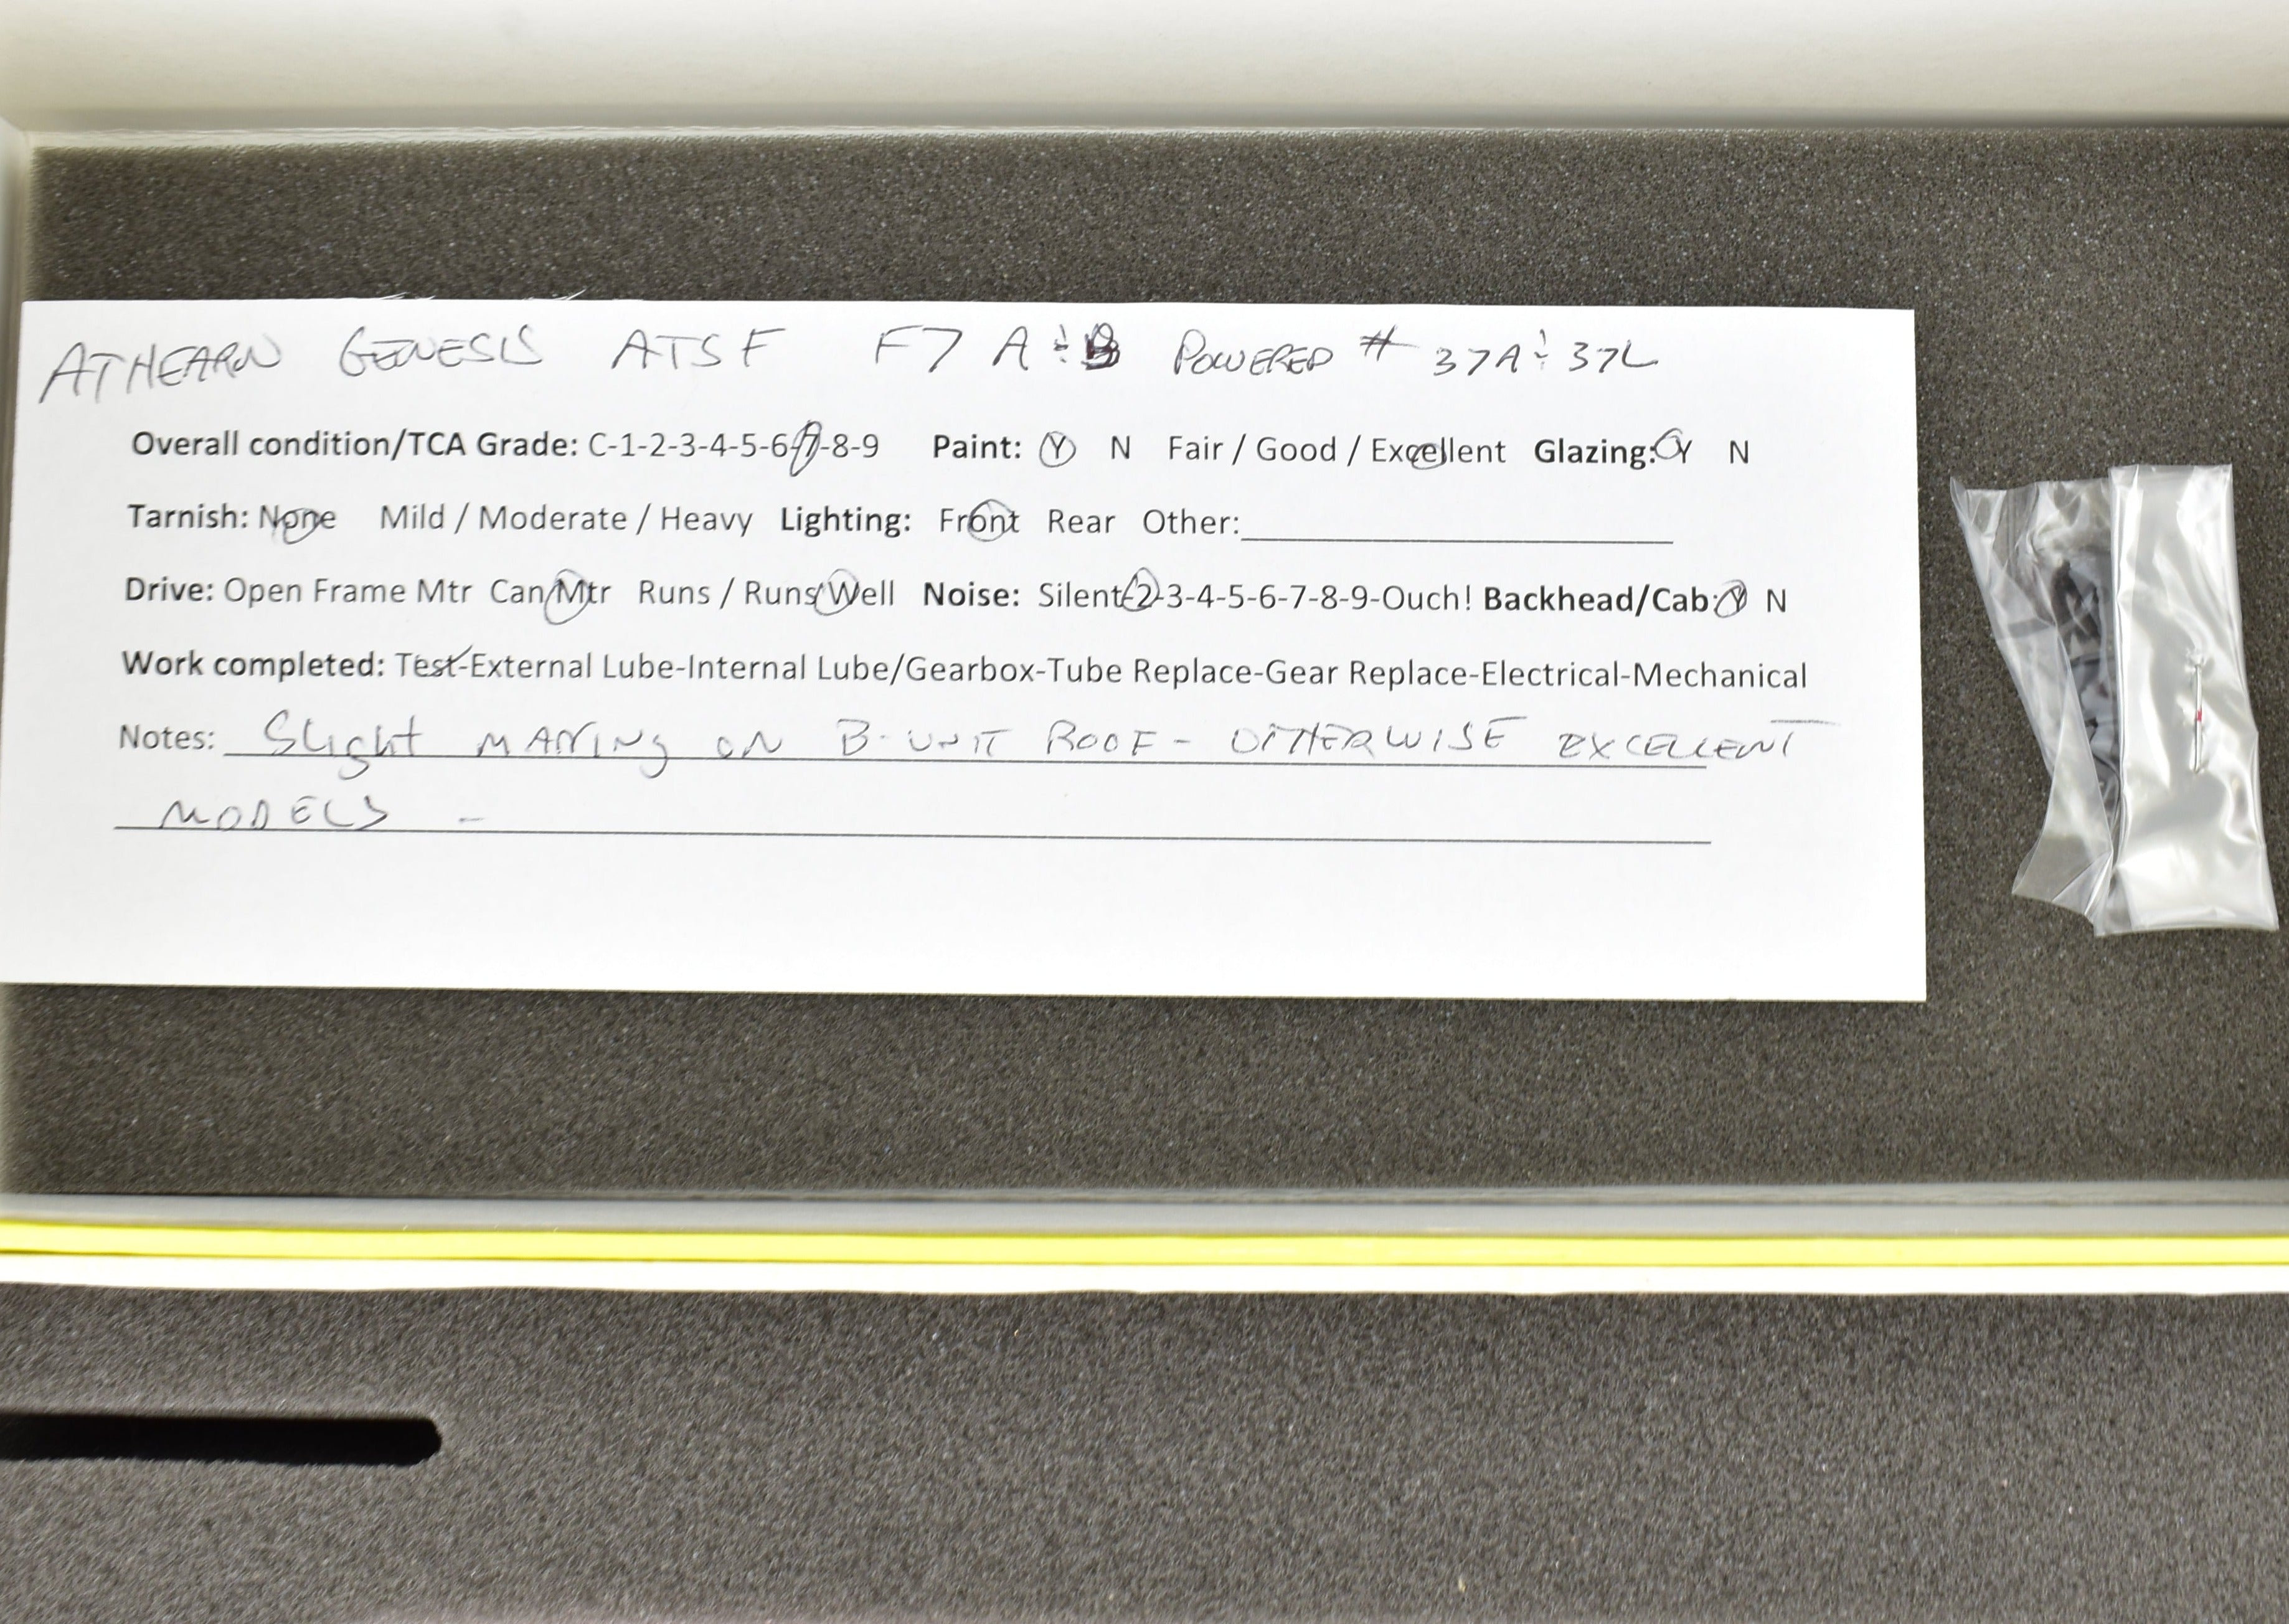 ATHEARN GENESIS ATSF F7 A & B POWERED # 37A & 37L
Overall condition/TCA Grade: C-1-2-3-4-5-6-7-8-9 Paint: Y N Fair / Good / Excellent Glazing: Y N
Tarnish: None Mild / Moderate / Heavy Lighting: Front Rear Other:
Drive: Open Frame Mtr Can Mtr Runs / Runs Well Noise: Silent-2-3-4-5-6-7-8-9-Ouch! Backhead/Cab: Y N
Work completed: Test-External Lube-Internal Lube/Gearbox-Tube Replace-Gear Replace-Electrical-Mechanical
Notes: Slight MARING ON B-UNIT ROOF - OTHERWISE EXCELLENT
MODELS -